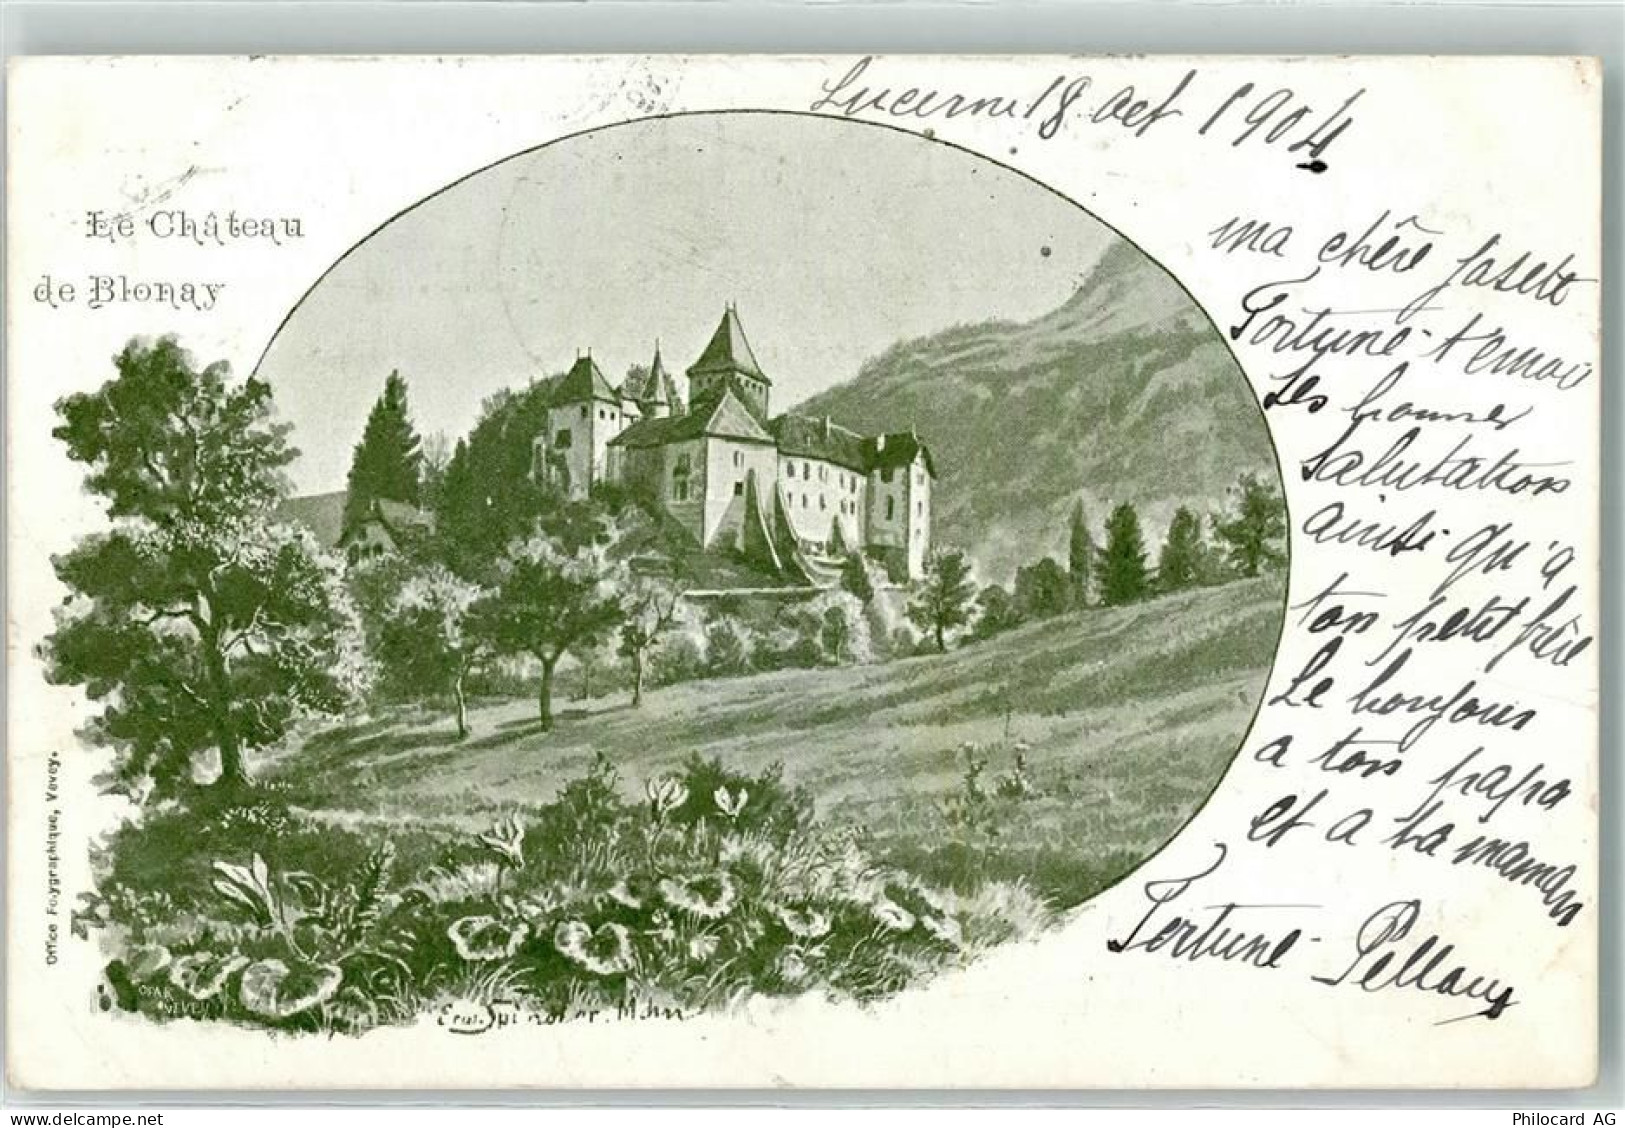 Lucerne 18 Oct 1904
Le Château
de Blonay
ma chère
Fortuné t'envoi
les bonnes
salutation
ainsi qu'a
ton petit frère
Le bonjour
a ton papa
et a ta maman
Fortuné Pellaux
Office Polygraphique, Vevey.
VEVEY
www.delcampe.net
Philocard AG